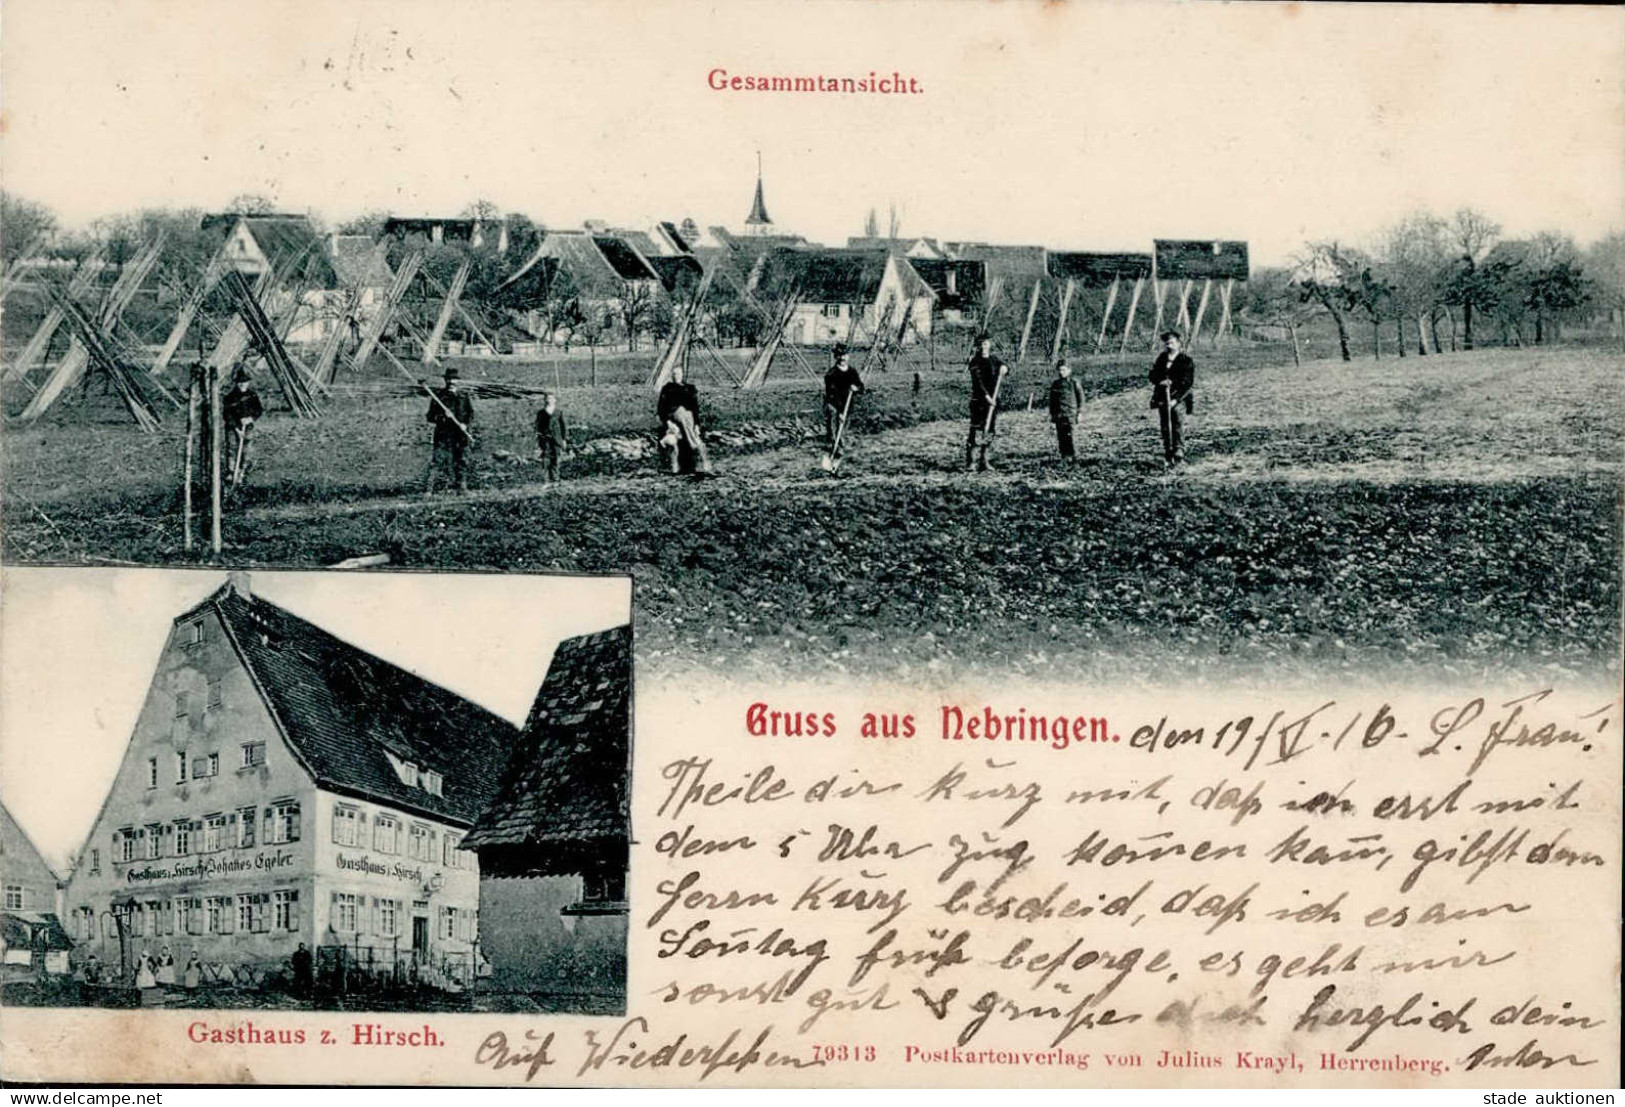 Gesammtansicht.
Gasthaus z. Hirsch Johannes Egeler
Gasthaus z. Hirsch
Gruss aus Nebringen. den 19/ /16. L. Frau!
Theile dir kurz mit, daß ich erst mit
dem 5 Uhr Zug kom̄en kan̄, gibst dem
Herrn Kurz bescheid, daß ich es am
Son̄tag früh besorge, es geht mir
sonst gut & grüße dich herzlich dein
Auf Wiedersehen
Gasthaus z. Hirsch.
79313 Postkartenverlag von Julius Krayl, Herrenberg.
the-collectors-company
stade auktionen